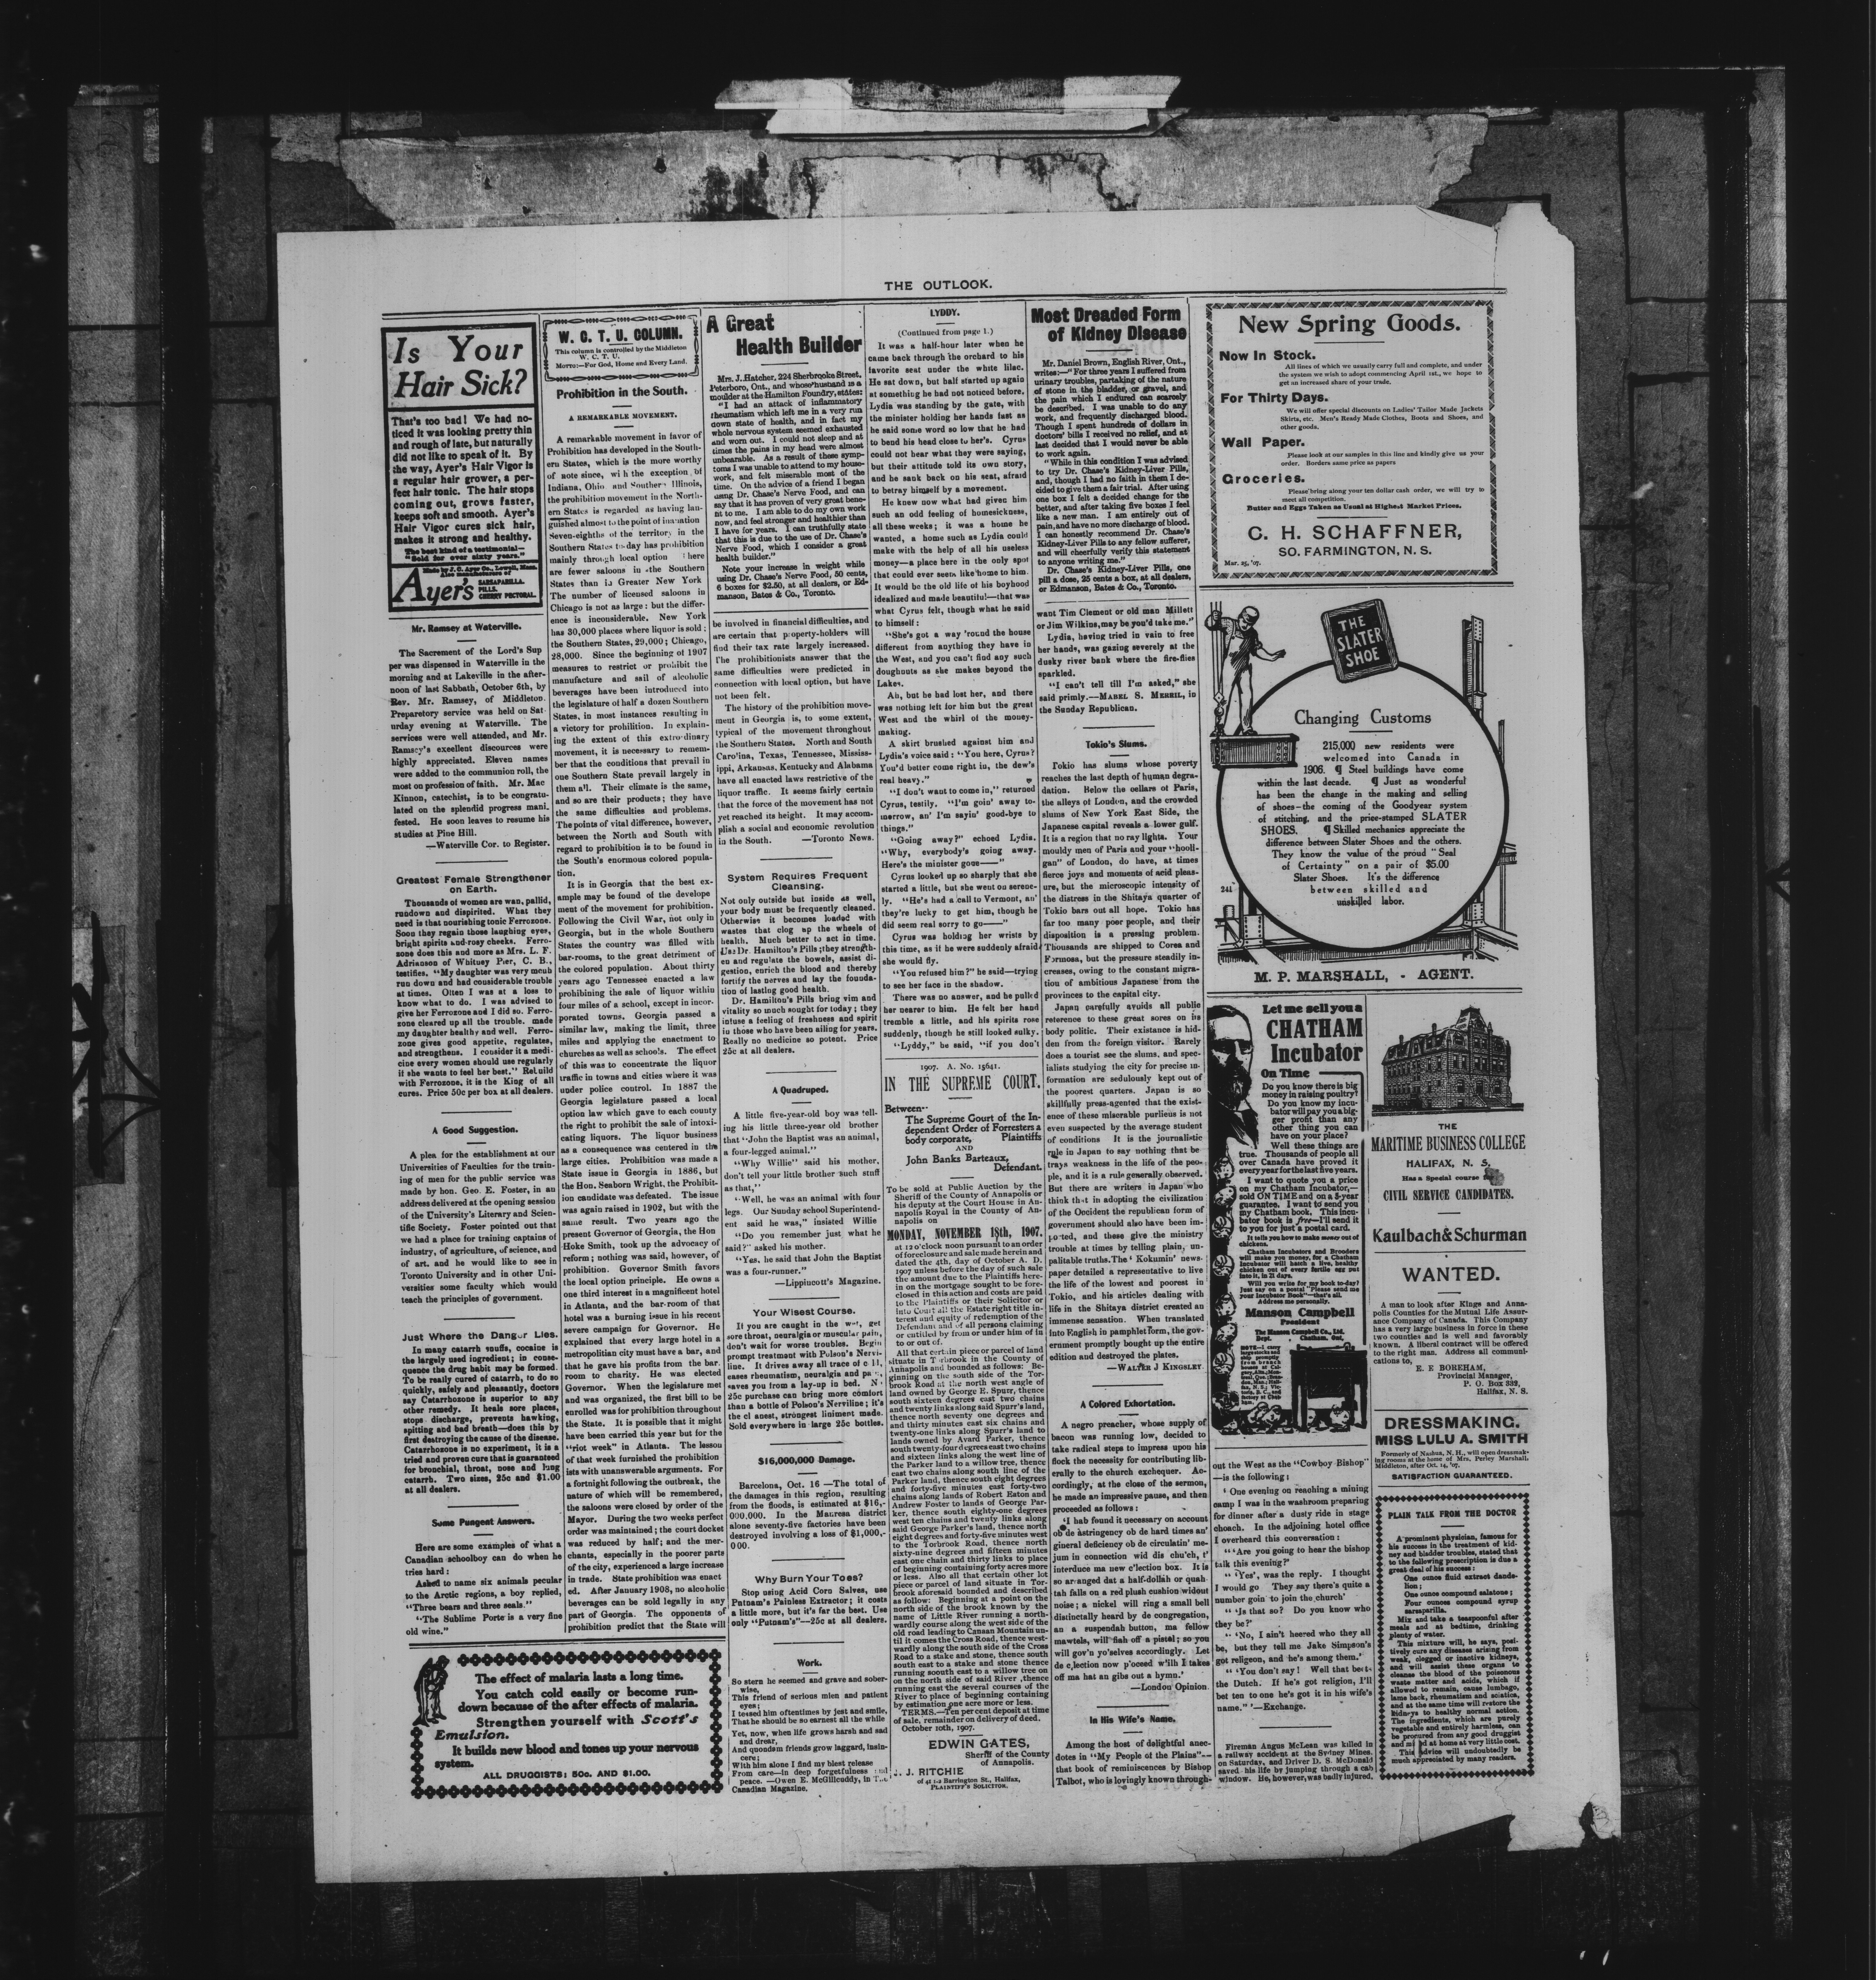 THE OUTLOOK.
Is Your
Hair Sick?
That's too bad! We had no-
ticed it was looking pretty thin
and rough of late, but naturally
did not like to speak of it. By
the way, Ayer's Hair Vigor is
a regular hair grower, a per-
fect hair tonic. The hair stops
coming out, grows faster,
keeps soft and smooth. Ayer's
Hair Vigor cures sick hair,
makes it strong and healthy.
The best kind of a testimonial—
"Sold for over sixty years."
Made by J. C. Ayer Co., Lowell, Mass.
Also manufacturers of
Ayer's
SARSAPARILLA.
PILLS.
CHERRY PECTORAL.
Mr. Ramsey at Waterville.
The Sacrement of the Lord's Sup
per was dispensed in Waterville in the
morning and at Lakeville in the after-
noon of last Sabbath, October 6th, by
Rev. Mr. Ramsey, of Middleton.
Preparetory service was held on Sat-
urday evening at Waterville. The
services were well attended, and Mr.
Ramsey's excellent discources were
highly appreciated. Eleven names
were added to the communion roll, the
most on profession of faith. Mr. Mac
Kinnon, catechist, is to be congratu-
lated on the splendid progress mani.
fested. He soon leaves to resume his
studies at Pine Hill.
—Waterville Cor. to Register.
Greatest Female Strengthener
on Earth.
Thousands of women are wan, pallid,
rundown and dispirited. What they
need is that nourishing tonic Ferrozone.
Soon they regain those laughing eyes,
bright spirits and rosy cheeks. Ferro-
zone does this and more as Mrs. L. F.
Adrianson of Whitney Pier, C. B.,
testifies. "My daughter was very much
run down and had considerable trouble
at times. Often I was at a loss to
know what to do. I was advised to
give her Ferrozone and I did so. Ferro-
zone cleared up all the trouble. made
my daughter healthy and well. Ferro-
zone gives good appetite, regulates,
and strengthens. I consider it a medi-
cine every women should use regularly
if she wants to feel her best." Rebuild
with Ferrozone, it is the King of all
cures. Price 50c per box at all dealers.
A Good Suggestion.
A plea for the establishment at our
Universities of Faculties for the train-
ing of men for the public service was
made by hon. Geo. E. Foster, in an
address delivered at the opening session
of the University's Literary and Scien-
tific Society. Foster pointed out that
we had a place for training captains of
industry, of agriculture, of science, and
of art. and he would like to see in
Toronto University and in other Uni-
versities some faculty which would
teach the principles of government.
Just Where the Danger Lies.
In many catarrh snuffs, cocaine is
the largely used ingredient; in conse-
quence the drug habit may be formed.
To be really cured of catarrh, to do so
quickly, safely and pleasantly, doctors
say Catarrhozone is superior to any
other remedy. It heals sore places,
stops discharge, prevents hawking,
spitting and bad breath—does this by
first destroying the cause of the disease.
Catarrhozone is no experiment, it is a
tried and proven cure that is guaranteed
for bronchial, throat, nose and lung
catarrh. Two sizes, 25c and $1.00
at all dealers.
Some Pungent Answers.
Here are some examples of what a
Canadian schoolboy can do when he
tries hard:
Asked to name six animals pecular
to the Arctic regions, a boy replied,
"Three bears and three seals."
"The Sublime Porte is a very fine
old wine."
The effect of malaria lasts a long time.
You catch cold easily or become run-
down because of the after effects of malaria.
Strengthen yourself with Scott's
Emulsion.
It builds new blood and tones up your nervous
system.
ALL DRUGGISTS; 50c. AND $1.00.
W. C. T. U. COLUMN.
This column is controlled by the Middleton
W. C. T. U.
MOTTO:—For God, Home and Every Land.
Prohibition in the South.
A REMARKABLE MOVEMENT.
A remarkable movement in favor of
Prohibition has developed in the South-
ern States, which is the more worthy
of note since, with the exception of
Indiana, Ohio and Southern Illinois,
the prohibition movement in the North-
ern States is regarded as having lan-
guished almost to the point of inanation
Seven-eighths of the territory in the
Southern States to-day has prohibition
mainly through local option There
are fewer saloons in the Southern
States than in Greater New York
The number of licensed saloons in
Chicago is not as large: but the differ-
ence is inconsiderable. New York
has 30,000 places where liquor is sold:
the Southern States, 29,000; Chicago,
28,000. Since the beginning of 1907
measures to restrict or prohibit the
manufacture and sail of alcoholic
beverages have been introduced into
the legislature of half a dozen Southern
States, in most instances resulting in
a victory for prohibition. In explain-
ing the extent of this extro-dinary
movement, it is necessary to remem-
ber that the conditions that prevail in
one Southern State prevail largely in
them all. Their climate is the same,
and so are their products; they have
the same difficulties and problems.
The points of vital difference, however,
between the North and South with
regard to prohibition is to be found in
the South's enormous colored popula-
tion.
It is in Georgia that the best ex-
ample may be found of the develope
ment of the movement for prohibition.
Following the Civil War, not only in
Georgia, but in the whole Southern
States the country was filled with
bar-rooms, to the great detriment of
the colored population. About thirty
years ago Tennessee enacted a law
prohibiting the sale of liquor within
four miles of a school, except in incor-
porated towns. Georgia passed a
similar law, making the limit, three
miles and applying the enactment to
churches as well as schools. The effect
of this was to concentrate the liquor
traffic in towns and cities where it was
under police control. In 1887 the
Georgia legislature passed a local
option law which gave to each county
the right to prohibit the sale of intoxi-
cating liquors. The liquor business
as a consequence was centered in the
large cities. Prohibition was made a
State issue in Georgia in 1886, but
the Hon. Seaborn Wright, the Prohibit-
ion candidate was defeated. The issue
was again raised in 1902, but with the
same result. Two years ago the
present Governor of Georgia, the Hon
Hoke Smith, took up the advocacy of
reform; nothing was said, however, of
prohibition. Governor Smith favors
the local option principle. He owns a
one third interest in a magnificent hotel
in Atlanta, and the bar-room of that
hotel was a burning issue in his recent
severe campaign for Governor. He
explained that every large hotel in a
metropolitian city must have a bar, and
that he gave his profits from the bar.
room to charity. He was elected
Governor. When the legislature met
and was organized, the first bill to be
enrolled was for prohibition throughout
the State. It is possible that it might
have been carried this year but for the
"riot week" in Atlanta. The lesson
of that week furnished the prohibition
ists with unanswerable arguments. For
a fortnight following the outbreak, the
nature of which will be remembered,
the saloons were closed by order of the
Mayor. During the two weeks perfect
order was maintained; the court docket
was reduced by half; and the mer-
chants, especially in the poorer parts
of the city, experienced a large increase
in trade. State prohibition was enact
ed. After January 1908, no alcoholic
beverages can be sold legally in any
part of Georgia. The opponents of
prohibition predict that the State will
A Great
Health Builder
Mrs. J. Hatcher, 224 Sherbrooke Street,
Peterboro, Ont., and whose husband is a
moulder at the Hamilton Foundry, states:
"I had an attack of inflammatory
rheumatism which left me in a very run
down state of health, and in fact my
whole nervous system seemed exhausted
and worn out. I could not sleep and at
times the pains in my head were almost
unbearable. As a result of these symp-
toms I was unable to attend to my house-
work, and felt miserable most of the
time. On the advice of a friend I began
using Dr. Chase's Nerve Food, and can
say that it has proven of very great bene-
fit to me. I am able to do my own work
now, and feel stronger and healthier than
I have for years. I can truthfully state
that this is due to the use of Dr. Chase's
Nerve Food, which I consider a great
health builder."
Note your increase in weight while
using Dr. Chase's Nerve Food, 50 cents,
6 boxes for $2.50, at all dealers, or Ed-
manson, Bates & Co., Toronto.
be involved in financial difficulties, and
are certain that property-holders will
find their tax rate largely increased.
The prohibitionists answer that the
same difficulties were predicted in
connection with local option, but have
not been felt.
The history of the prohibition move-
ment in Georgia is, to some extent,
typical of the movement throughout
the Southern States. North and South
Carolina, Texas, Tennessee, Mississ-
ippi, Arkansas, Kentucky and Alabama
have all enacted laws restrictive of the
liquor traffic. It seems fairly certain
that the force of the movement has not
yet reached its height. It may accom-
plish a social and economic revolution
in the South. —Toronto News.
System Requires Frequent
Cleansing.
Not only outside but inside as well,
your body must be frequently cleaned.
Otherwise it becomes loaded with
wastes that clog up the wheels of
health. Much better to act in time.
Use Dr. Hamilton's Pills; they strength-
en and regulate the bowels, assist di-
gestion, enrich the blood and thereby
fortify the nerves and lay the founda-
tion of lasting good health.
Dr. Hamilton's Pills bring vim and
vitality so much sought for today; they
infuse a feeling of freshness and spirit
in those who have been ailing for years.
Really no medicine so potent. Price
25c at all dealers.
A Quadruped.
A little five-year-old boy was tell-
ing his little three-year old brother
that "John the Baptist was an animal,
a four-legged animal."
"Why Willie" said his mother,
don't tell your little brother such stuff
as that,"
"Well, he was an animal with four
legs. Our Sunday school Superintend-
ent said he was," insisted Willie
"Do you remember just what he
said?" asked his mother.
"Yes. he said that John the Baptist
was a four-runner."
—Lippincott's Magazine.
Your Wisest Course.
If you are caught in the wet, get
sore throat, neuralgia or muscular pain,
don't wait for worse troubles. Begin
prompt treatment with Polson's Nervi-
line. It drives away all trace of c ll,
eases rheumatism, neuralgia and pa
saves you from a lay-up in bed. N
25c purchase can bring more comfort
than a bottle of Polson's Nerviline; it's
the cl anest, strongest liniment made.
Sold everywhere in large 25c bottles.
$16,000,000 Damage.
Barcelona, Oct. 16 —The total of
the damages in this region, resulting
from the floods, is estimated at $16,-
000,000. In the Manresa district
alone seventy-five factories have been
destroyed involving a loss of $1,000,-
000.
Why Burn Your Toes?
Stop using Acid Corn Salves, use
Putnam's Painless Extractor; it costs
a little more, but it's far the best. Use
only "Putnam's"—25c at all dealers.
Work.
So stern he seemed and grave and sober-
wise,
This friend of serious mien and patient
eyes;
I teased him oftentimes by jest and smile,
That he should be so earnest all the while
Yet, now, when life grows harsh and sad
and drear,
And quondam friends grow laggard, insin-
cere;
With him alone I find my blest release
From care—in deep forgetfulness and
peace. —Owen E. McGillicuddy, in The
Canadian Magazine.
LYDDY.
(Continued from page 1.)
It was a half-hour later when he
came back through the orchard to his
favorite seat under the white lilac.
He sat down, but half started up again
at something he had not noticed before.
Lydia was standing by the gate, with
the minister holding her hands fast as
he said some word so low that he had
to bend his head close to her's. Cyrus
could not hear what they were saying,
but their attitude told its own story,
and he sank back on his seat, afraid
to betray himself by a movement.
He knew now what had given him
such an odd feeling of homesickness,
all these weeks; it was a home he
wanted, a home such as Lydia could
make with the help of all his useless
money—a place here in the only spot
that could ever seem like home to him.
It would be the old life of his boyhood
idealized and made beautiful—that was
what Cyrus felt, though what he said
to himself:
"She's got a way 'round the house
different from anything they have in
the West, and you can't find any such
doughnuts as she makes beyond the
Lakes.
Ah, but he had lost her, and there
was nothing left for him but the great
West and the whirl of the money-
making.
A skirt brushed against him and
Lydia's voice said: "You here, Cyrus?
You'd better come right in, the dew's
real heavy."
"I don't want to come in," returned
Cyrus, testily. "I'm goin' away to-
morrow, an' I'm sayin' good-bye to
things."
"Going away?" echoed Lydia.
"Why, everybody's going away.
Here's the minister gone——"
Cyrus looked up so sharply that she
started a little, but she went on serene-
ly. "He's had a call to Vermont, an'
they're lucky to get him, though he
did seem real sorry to go——"
Cyrus was holding her wrists by
this time, as if he were suddenly afraid
she would fly.
"You refused him?" he said—trying
to see her face in the shadow.
There was no answer, and he pulled
her nearer to him. He felt her hand
tremble a little, and his spirits rose
suddenly, though he still looked sulky.
"Lyddy," he said, "if you don't
1907. A. No. 15641.
IN THE SUPREME COURT.
Between--
The Supreme Court of the In-
dependent Order of Forresters a
body corporate, Plaintiffs
AND
John Banks Barteaux,
Defendant.
To be sold at Public Auction by the
Sheriff of the County of Annapolis or
his deputy at the Court House in An-
napolis Royal in the County of An-
napolis on
MONDAY, NOVEMBER 18th, 1907.
at 12 o'clock noon pursuant to an order
of foreclosure and sale made herein and
dated the 4th, day of October A. D.
1907 unless before the day of such sale
the amount due to the Plaintiffs here-
in on the mortgage sought to be fore-
closed in this action and costs are paid
to the Plaintiffs or their Solicitor or
into Court all the Estate right title in-
terest and equity of redemption of the
Defendant and of all persons claiming
or entitled by from or under him of in
to or out of.
All that certain piece or parcel of land
situate in Torbrook in the County of
Annapolis and bounded as follows: Be-
ginning on the south side of the Tor-
brook Road at the north west angle of
land owned by George R. Spurr, thence
south sixteen degrees east two chains
and twenty links along said Spurr's land,
thence north seventy one degrees and
and thirty minutes east six chains and
twenty-one links along Spurr's land to
lands owned by Avard Parker, thence
south twenty-four degrees east two chains
and sixteen links along the west line of
the Parker land to a willow tree, thence
east two chains along south line of the
Parker land, thence south eight degrees
and forty-five minutes east forty-two
chains along lands of Robert Eaton and
Andrew Foster to lands of George Par-
ker, thence south eighty-one degrees
west ten chains and twenty links along
said George Parker's land, thence north
eight degrees and forty-five minutes west
to the Torbrook Road, thence north
sixty-nine degrees and fifteen minutes
east one chain and thirty links to place
of beginning containing forty acres more
or less. Also all that certain other lot
piece or parcel of land situate in Tor-
brook aforesaid bounded and described
as follow: Beginning at a point on the
north side of the brook known by the
name of Little River running a north-
wardly course along the west side of the
old road leading to Canaan Mountain un-
til it comes the Cross Road, thence west-
wardly along the south side of the Cross
Road to a stake and stone, thence south
south east to a stake and stone thence
running soouth east to a willow tree on
on the north side of said River ,thence
running east the several courses of the
River to place of beginning containing
by estimation one acre more or less.
TERMS.—Ten per cent deposit at time
of sale, remainder on delivery of deed.
October 10th, 1907.
EDWIN GATES,
Sheriff of the County
of Annapolis.
J. J. RITCHIE
of 41 1-2 Barrington St., Halifax,
PLAINTIFF'S SOLICITOR.
Most Dreaded Form
of Kidney Disease
Mr. Daniel Brown, English River, Ont.,
writes:—"For three years I suffered from
urinary troubles, partaking of the nature
of stone in the bladder, or gravel, and
the pain which I endured can scarcely
be described. I was unable to do any
work, and frequently discharged blood.
Though I spent hundreds of dollars in
doctors' bills I received no relief, and at
last decided that I would never be able
to work again.
"While in this condition I was advised
to try Dr. Chase's Kidney-Liver Pills,
and, though I had no faith in them I de-
cided to give them a fair trial. After using
one box I felt a decided change for the
better, and after taking five boxes I feel
like a new man. I am entirely out of
pain, and have no more discharge of blood.
I can honestly recommend Dr. Chase's
Kidney-Liver Pills to any fellow sufferer,
and will cheerfully verify this statement
to anyone writing me."
Dr. Chase's Kidney-Liver Pills, one
pill a dose, 25 cents a box, at all dealers,
or Edmanson, Bates & Co., Toronto.
want Tim Clement or old man Millett
or Jim Wilkins, may be you'd take me."
Lydia, having tried in vain to free
her hands, was gazing severely at the
dusky river bank where the fire-flies
sparkled.
"I can't tell till I'm asked," she
said primly.—MABEL S. MERRIL, in
the Sunday Republican.
Tokio's Slums.
Tokio has slums whose poverty
reaches the last depth of human degra-
dation. Below the cellars of Paris,
the alleys of London, and the crowded
slums of New York East Side, the
Japanese capital reveals a lower gulf.
It is a region that no ray lights. Your
mouldy men of Paris and your "hooli-
gan" of London, do have, at times
fierce joys and moments of acid pleas-
ure, but the microscopic intensity of
the distress in the Shitaya quarter of
Tokio bars out all hope. Tokio has
far too many poer people, and their
disposition is a pressing problem.
Thousands are shipped to Corea and
Formosa, but the pressure steadily in-
creases, owing to the constant migra-
tion of ambitious Japanese from the
provinces to the capital city.
Japan carefully avoids all public
reference to these great sores on its
body politic. Their existence is hid-
den from the foreign visitor. Rarely
does a tourist see the slums. and spec-
ialists studying the city for precise in-
formation are sedulously kept out of
the poorest quarters. Japan is so
skillfully press-agented that the exist-
ence of these miserable purlieus is not
even suspected by the average student
of conditions It is the journalistic
rule in Japan to say nothing that be
trays weakness in the life of the peo-
ple, and it is a rule generally observed.
But there are writers in Japan who
think that in adopting the civilization
of the Occident the republican form of
government should also have been im-
ported, and these give the ministry
trouble at times by telling plain, un-
palitable truths. The 'Kokumin' news-
paper detailed a representative to live
the life of the lowest and poorest in
Tokio, and his articles dealing with
life in the Shitaya district created an
immense sensation. When translated
into English in pamphlet form, the gov-
ernment promptly bought up the entire
edition and destroyed the plates.
—WALTER J KINGSLEY
A Colored Exhortation.
A negro preacher, whose supply of
bacon was running low, decided to
take radical steps to impress upon his
flock the necessity for contributing lib-
erally to the church exchequer. Ac-
cordingly, at the close of the sermon,
he made an impressive pause, and then
proceeded as follows:
'I hab found it necessary on account
ob de astringency ob de hard times an'
gineral deficiency ob de circulatin' me-
jum in connection wid dis chu'ch, t'
interduce ma new c'lection box. It is
so arranged dat a half-dollah or quah-
tah falls on a red plush cushion widout
noise; a nickel will ring a small bell
distinctally heard by de congregation,
an a suspendah button, ma fellow
mawtels, will fiah off a pistol; so you
will gov'n yo'selves accordingly. Let
de c,lection now p'oceed w'ilh I takes
off ma hat an gibs out a hymn.'
—London Opinion.
In His Wife's Name.
Among the host of delightful anec-
dotes in "My People of the Plains"--
that book of reminiscences by Bishop
Talbot, who is lovingly known through-
New Spring Goods.
Now In Stock.
All lines of which we usually carry full and complete, and under
the system we wish to adopt commencing April 1st., we hope to
get an increased share of your trade.
For Thirty Days.
We will offer special discounts on Ladies' Tailor Made Jackets
Skirts, etc. Men's Ready Made Clothes, Boots and Shoes, and
other goods.
Wall Paper.
Please look at our samples in this line and kindly give us your
order. Borders same price as papers
Groceries.
Please bring along your ten dollar cash order, we will try to
meet all competition.
Butter and Eggs Taken as Usual at Highest Market Prices.
C. H. SCHAFFNER,
SO. FARMINGTON, N. S.
Mar. 25, '07.
THE
SLATER
SHOE
Changing Customs
215,000 new residents were
welcomed into Canada in
1906. ¶ Steel buildings have come
within the last decade. ¶ Just as wonderful
has been the change in the making and selling
of shoes—the coming of the Goodyear system
of stitching, and the price-stamped SLATER
SHOES. ¶ Skilled mechanics appreciate the
difference between Slater Shoes and the others.
They know the value of the proud "Seal
of Certainty" on a pair of $5.00
Slater Shoes. It's the difference
between skilled and
unskilled labor.
241
M. P. MARSHALL, - AGENT.
Let me sell you a
CHATHAM
Incubator
On Time
Do you know there is big
money in raising poultry?
Do you know my incu-
bator will pay you a big-
ger profit than any
other thing you can
have on your place?
Well these things are
true. Thousands of people all
over Canada have proved it
every year for the last five years.
I want to quote you a price
on my Chatham Incubator,—
sold ON TIME and on a 5-year
guarantee. I want to send you
my Chatham book. This incu-
bator book is free—I'll send it
to you for just a postal card.
It tells you how to make money out of
chickens.
Chatham Incubators and Brooders
will make you money, for a Chatham
Incubator will hatch a live, healthy
chicken out of every fertile egg put
into it, in 21 days.
Will you write for my book to-day?
Just say on a postal "Please send me
your Incubator Book"—that's all.
Address me personally.
Manson Campbell
President
The Manson Campbell Co., Ltd.
Dept. Chatham, Ont.
NOTE—I carry
large stocks and
ship promptly
from branch
houses at Cal-
gary, Alta.; Mon-
treal, Que.; Bran-
don, Man.; Hali-
fax, N. S.; Vic-
toria, B. C., and
factory at Chat-
ham.
out the West as the "Cowboy Bishop"
—is the following:
' One evening on reaching a mining
camp I was in the washroom preparing
for dinner after a dusty ride in stage
choach. In the adjoining hotel office
I overheard this conversation:
"'Are you going to hear the bishop
talk this evening?'
"'Yes', was the reply. I thought
I would go They say there's quite a
number goin' to join the church'
"'Is that so? Do you know who
they be?'
"'No, I ain't heered who they all
be, but they tell me Jake Simpson's
got religeon, and he's among them.'
"'You don't say! Well that beats
the Dutch. If he's got religion, I'll
bet ten to one he's got it in his wife's
name."'—Exchange.
Fireman Angus McLean was killed in
a railway accident at the Sydney Mines.
on Saturday, and Driver D. S. McDonald
saved his life by jumping through a cab
window. He, however, was badly injured.
THE
MARITIME BUSINESS COLLEGE
HALIFAX, N. S.
Has a Special course for
CIVIL SERVICE CANDIDATES.
Kaulbach & Schurman
WANTED.
A man to look after Kings and Anna-
polis Counties for the Mutual Life Assur-
ance Company of Canada. This Company
has a very large business in force in these
two counties and is well and favorably
known. A liberal contract will be offered
to the right man. Address all communi-
cations to,
E. E BOREHAM,
Provincial Manager,
P. O. Box 332,
Halifax, N. S.
DRESSMAKING.
MISS LULU A. SMITH
Formerly of Nashua, N. H., will open dressmak-
ing rooms at the home of Mrs. Perley Marshall,
Middleton, after Oct. 14, '07.
SATISFACTION GUARANTEED.
PLAIN TALK FROM THE DOCTOR
A prominent physician, famous for
his success in the treatment of kid-
ney and bladder troubles, stated that
to the following prescription is due a
great deal of his success:
One ounce fluid extract dande-
lion;
One ounce compound salatone;
Four ounces compound syrup
sarsaparilla.
Mix and take a teaspoonful after
meals and at bedtime, drinking
plenty of water.
This mixture will, he says, posi-
tively cure any diseases arising from
weak, clogged or inactive kidneys,
and will assist these organs to
cleanse the blood of the poisonous
waste matter and acids, which if
allowed to remain, cause lumbago,
lame back, rheumatism and sciatica,
and at the same time will restore the
kidneys to healthy normal action.
The ingredients, which are purely
vegetable and entirely harmless, can
be procured from any good druggist
and mixed at home at very little cost.
This advice will undoubtedly be
much appreciated by many readers.